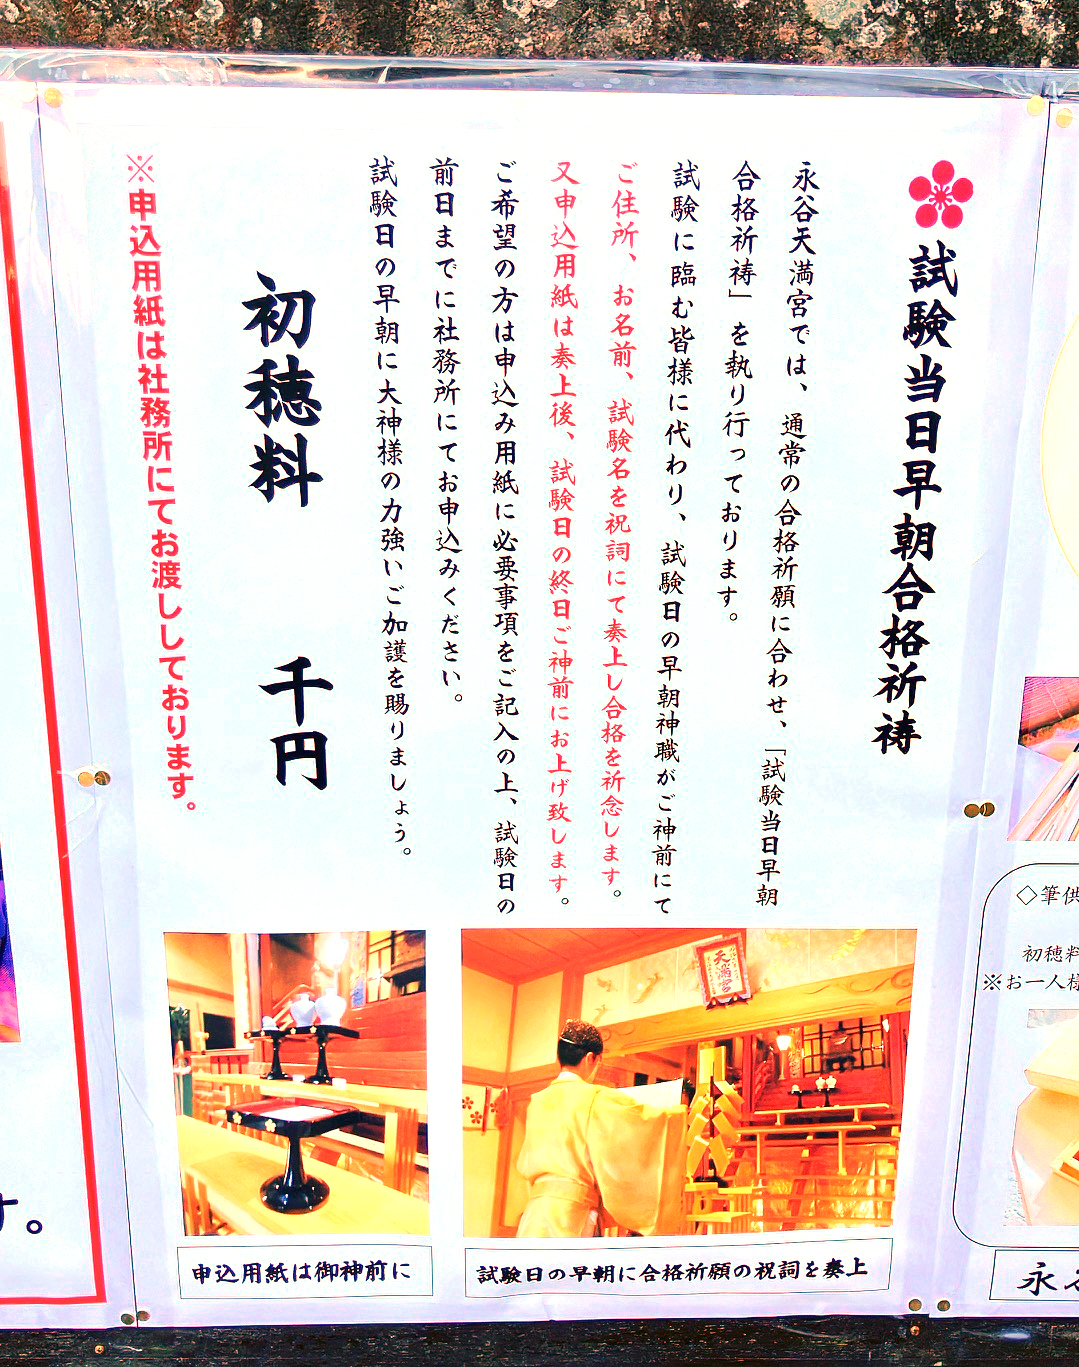 試験当日早朝合格祈祷
永谷天満宮では、通常の合格祈願に合わせ、「試験当日早朝
合格祈祷」を執り行っております。
試験に臨む皆様に代わり、試験日の早朝神職がご神前にて
ご住所、お名前、試験名を祝詞にて奏上し合格を祈念します。
又申込用紙は奏上後、試験日の終日ご神前にお上げ致します。
ご希望の方は申込み用紙に必要事項をご記入の上、試験日の
前日までに社務所にてお申込みください。
試験日の早朝に大神様の力強いご加護を賜りましょう。
初穂料 千円
※申込用紙は社務所にてお渡ししております。
天満宮
申込用紙は御神前に
試験日の早朝に合格祈願の祝詞を奏上
◇筆供
初穂料
※お一人様
永谷
す。